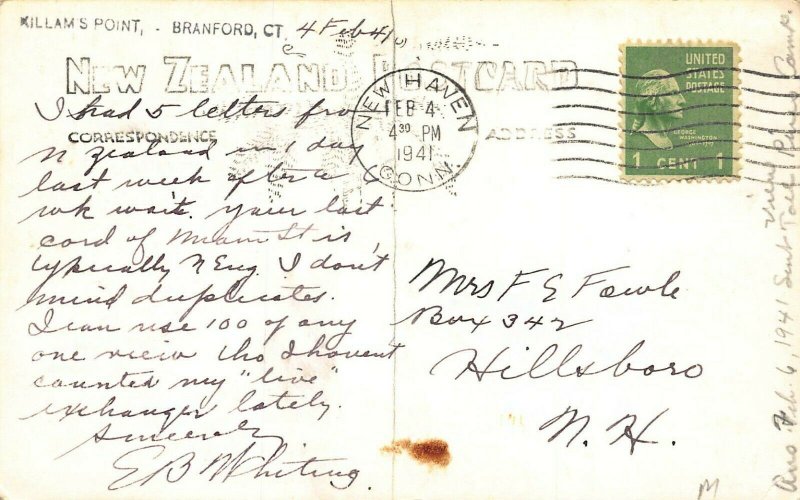 KILLAM'S POINT, - BRANFORD, CT. 4 Feb 41
NEW ZEALAND POSTCARD
CORRESPONDENCE
ADDRESS
I had 5 letters from
N Zealand in 1 day
last week after a
wk wait. Your last
card of Main St is
typically N Eng. I don't
mind duplicates.
I can use 100 of any
one view tho I haven't
counted my "live"
exchanges lately.
Sincerely
E B Whiting.
NEW HAVEN
FEB 4
4 30 PM
1941
CONN.
UNITED
STATES
POSTAGE
GEORGE
WASHINGTON
1 CENT 1
Mrs F E Fowle
Box 342
Hillsboro
N. H.
Ans. Feb. 6, 1941 Sent
View
M